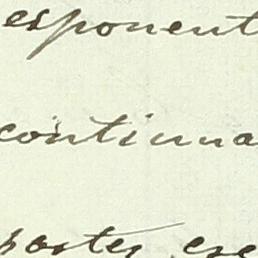 esponent
continua
portes exe